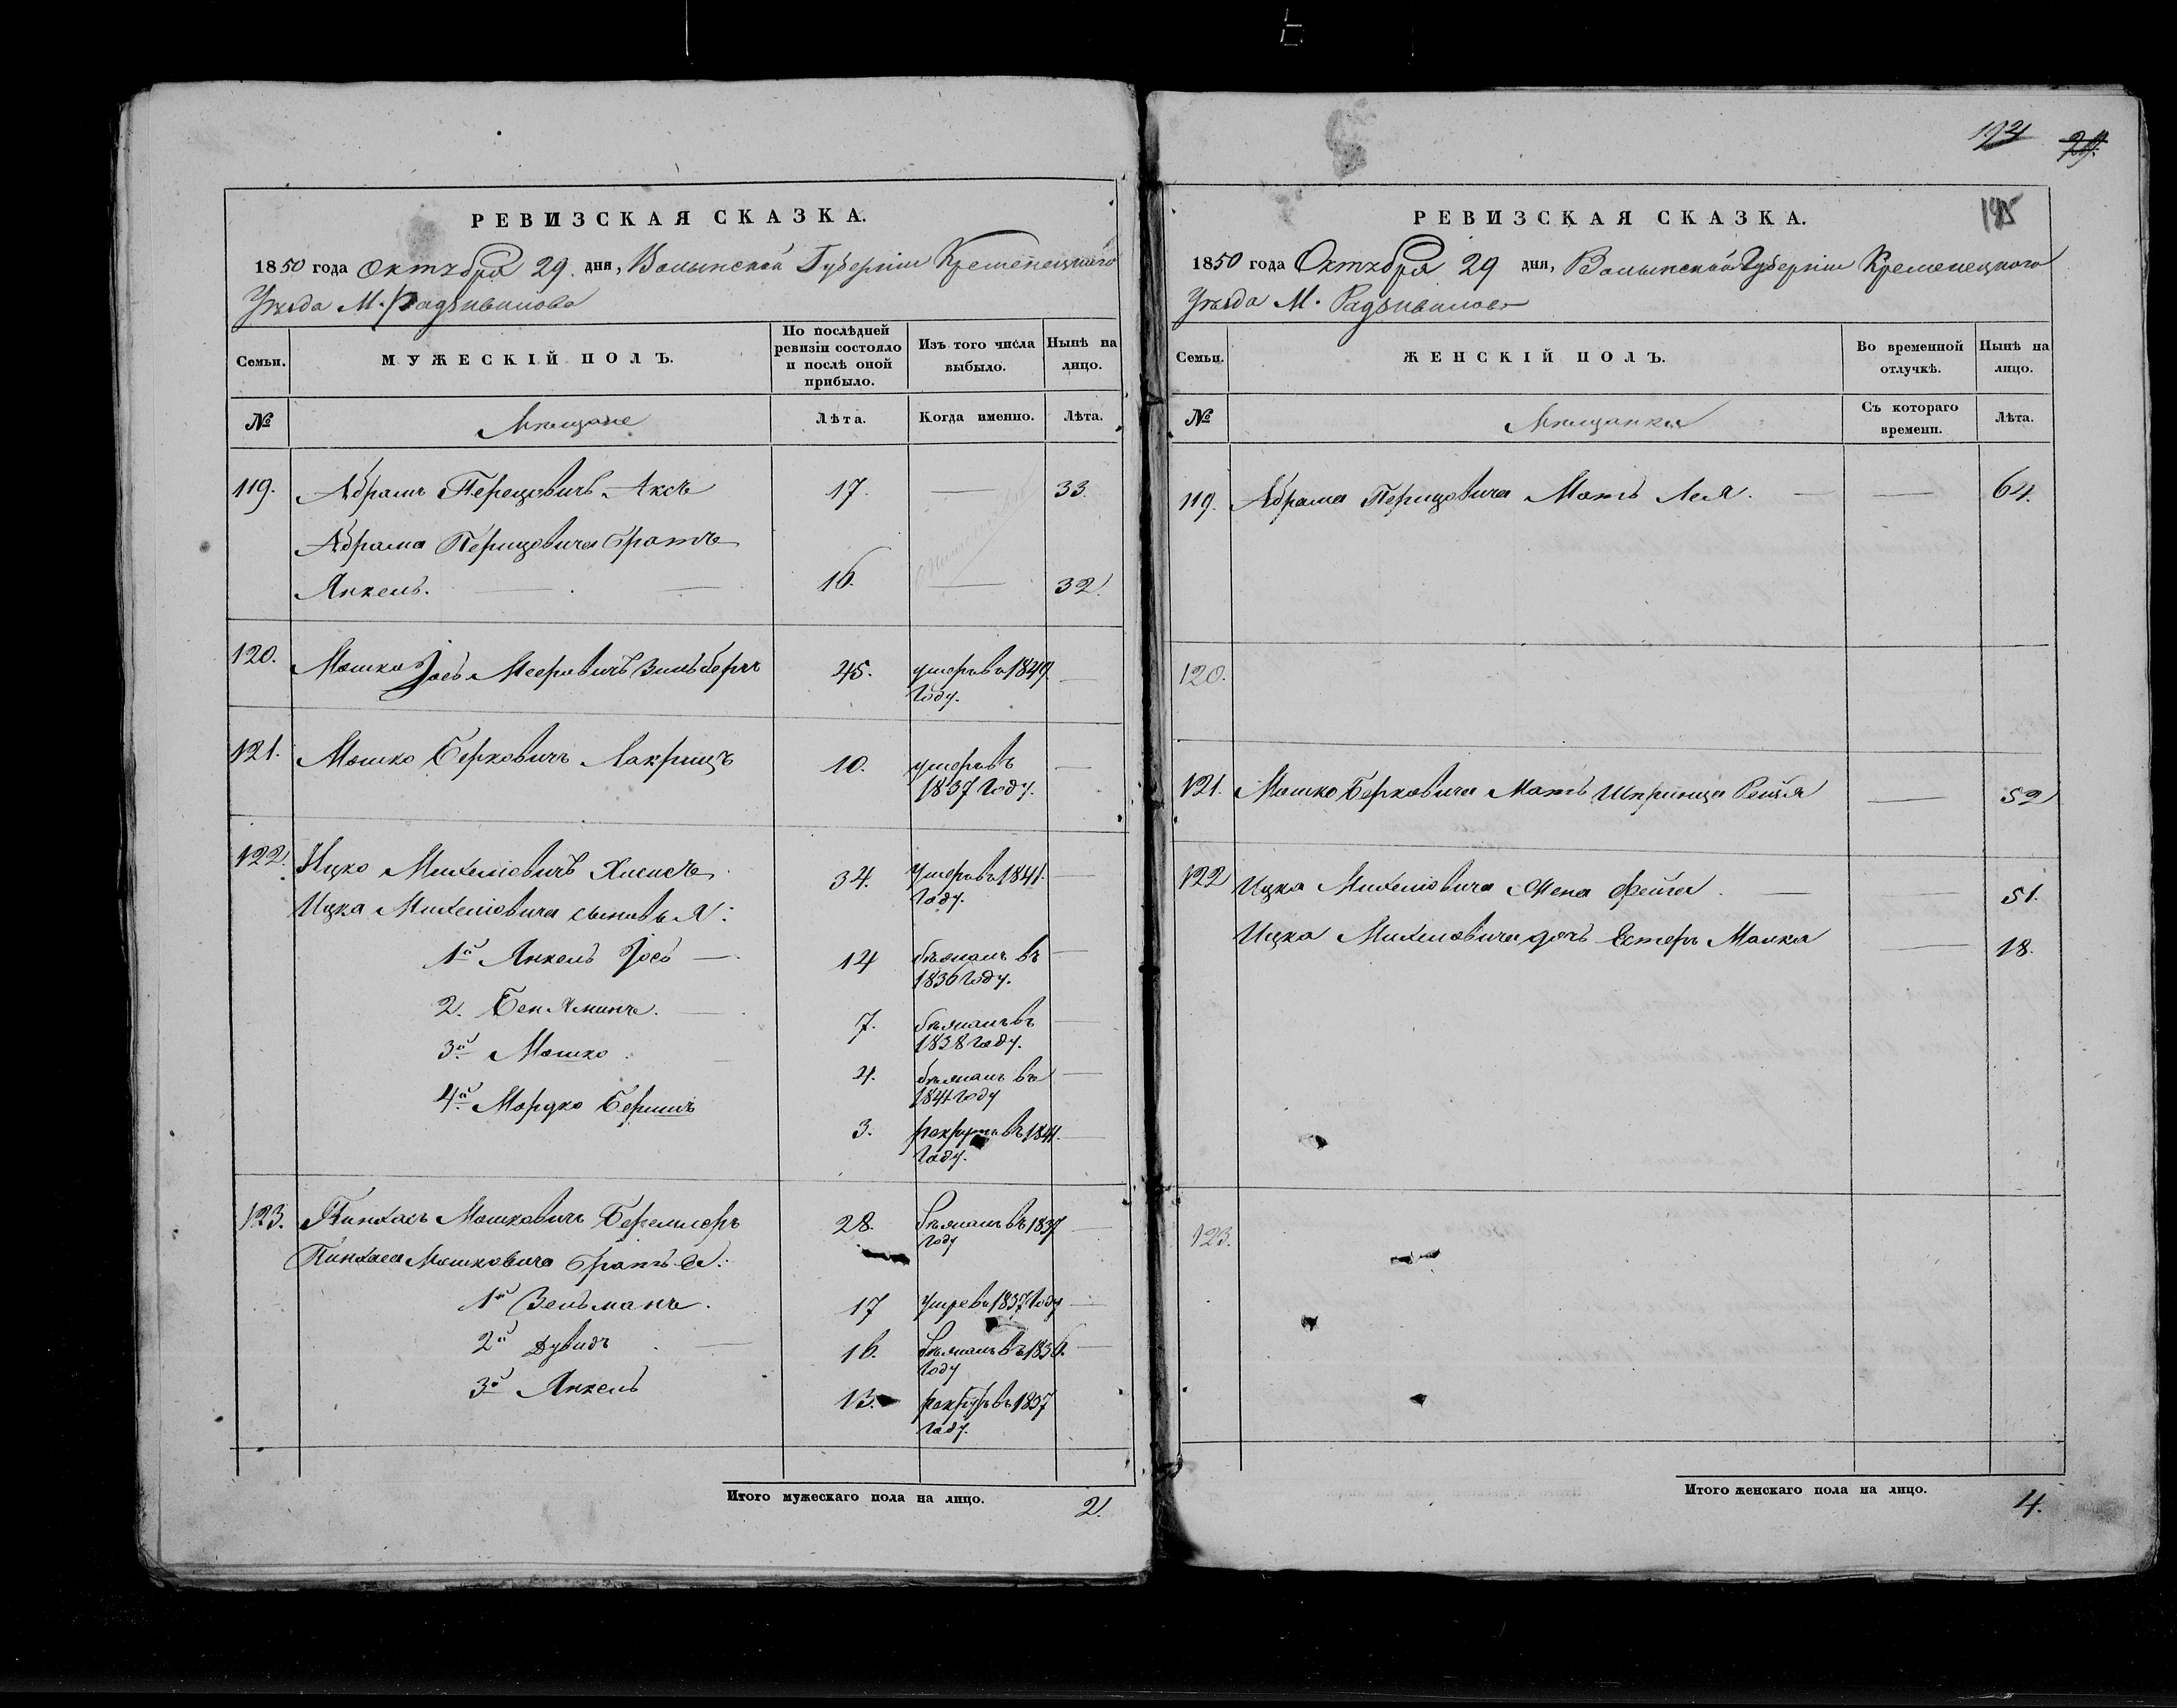 РЕВИЗСКАЯ СКАЗКА.
1850 года Октября 29 дня, Волынской Губернии Кременецкаго
Уезда М. Радзивилова
Семьи.
МУЖЕСКІЙ ПОЛЪ.
По послѣдней ревизіи состояло и послѣ оной прибыло.
Изъ того числа выбыло.
Нынѣ на лицо.
№
Мещане
Лѣта.
Когда именно.
Лѣта.
119. Абрамъ Перецовичъ Аксъ 17. — 33.
Абрама Перицовича братъ
Янкель. — 16. — 32.
120. Мошко Іось Мееровичъ Зильберъ 45. умеръ въ 1849 —
году.
121. Мошко Берковичъ Лакрицъ 10. умеръ въ —
1837 году.
122. Ицко Михелiовичъ 34. Умеръ въ 1841. —
году.
Ицка Михелiовича сыновья:
1й Янкель Іось — 14 бѣжалъ въ —
1836 году.
2. Беняминъ. — 7. бѣжалъ въ —
1838 году.
3й Мошко. 4. бѣжалъ въ —
1841 году
4й Мордко Беришъ 3. рекрутъ въ 1841. —
году.
123. Пинхасъ Мошковичъ 28. бѣжалъ въ 1837 —
году
Пинхаса Мошковича братья:
1й Зельманъ. 17 Умре въ 1837 году —
2й Дувидъ — 16. бѣжалъ въ 1836. —
году
3й Янкель 13. рекрутъ въ 1837
году.
Итого мужескаго пола на лицо. 2.
124 29.
195
РЕВИЗСКАЯ СКАЗКА.
1850 года Октября 29 дня, Волынской Губерніи Кременецкого
Уезда М. Радзивилова
Семьи.
ЖЕНСКІЙ ПОЛЪ.
Во временной отлучкѣ.
Нынѣ на лицо.
№
Мещанки
Съ котораго времени.
Лѣта.
119. Абрама Перицовича Мать Лея. — — 64.
120.
121. Мошко Берковича Мать Шпринца Рейзя — 52
122 Ицка Михелiовича Жена Фейга. — — 51.
Ицка Михелiовича дочь Естеръ Малка — 18.
123.
Итого женскаго пола на лицо. 4.